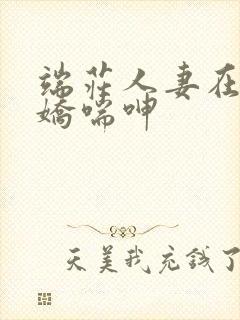 端莊人妻在
嬌喘呻
天美我充錢了